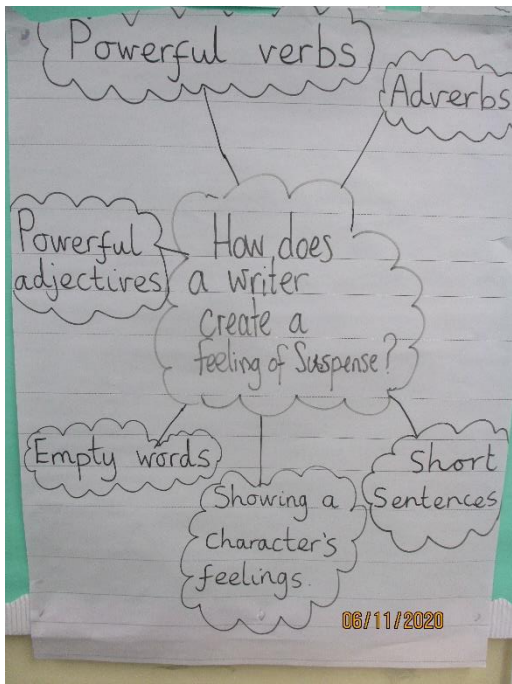 Powerful verbs
Adverbs
Powerful
adjectives
How does
a writer
create a
feeling of Suspense?
Empty words
Showing a
Character's
feelings.
Short
Sentences
06/11/2020